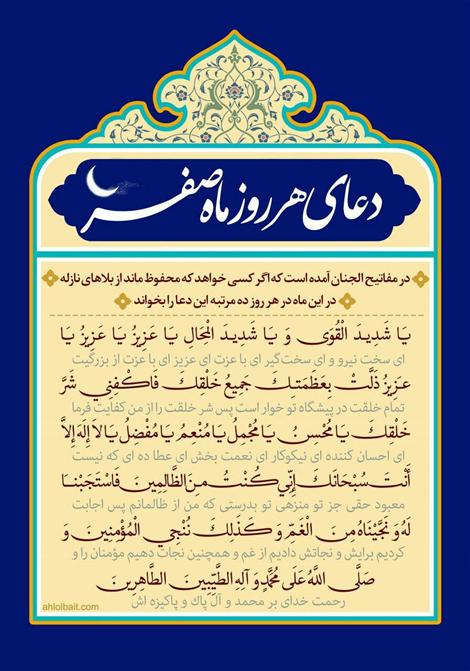 دعای هر روز ماه صفر
در مفاتیح الجنان آمده است که اگر کسی خواهد که محفوظ ماند از بلاهای نازله
در این ماه در هر روز ده مرتبه این دعا را بخواند
یَا شَدِیدَ الْقُوَی وَ یَا شَدِیدَ الْمِحَالِ یَا عَزِیزُ یَا عَزِیزُ یَا
ای سخت نیرو و ای سخت‌گیر ای با عزت ای عزیز ای با عزت از بزرگیت
عَزِیزُ ذَلَّتْ بِعَظَمَتِکَ جَمِیعُ خَلْقِکَ فَاکْفِنِی شَرَّ
تمام خلقت در پیشگاه تو خوار است پس شر خلقت را از من کفایت فرما
خَلْقِکَ یَا مُحْسِنُ یَا مُجْمِلُ یَا مُنْعِمُ یَا مُفْضِلُ یَا لاَ إِلَهَ إِلاَّ
ای احسان کننده ای نیکوکار ای نعمت بخش ای عطا ده ای که نیست
أَنْتَ سُبْحَانَکَ إِنِّی کُنْتُ مِنَ الظَّالِمِینَ فَاسْتَجَبْنَا
معبود حقی جز تو منزهی تو بدرستی که من از ظالمانم پس اجابت
لَهُ وَ نَجَّیْنَاهُ مِنَ الْغَمِّ وَ کَذَلِکَ نُنْجِی الْمُؤْمِنِینَ وَ
کردیم برایش و نجاتش دادیم از غم و همچنین نجات دهیم مؤمنان را و
صَلَّی اللَّهُ عَلَی مُحَمَّدٍ وَ آلِهِ الطَّیِّبِینَ الطَّاهِرِینَ
رحمت خدای بر محمد و آل پاك و پاکیزه اش
ahlolbait.com